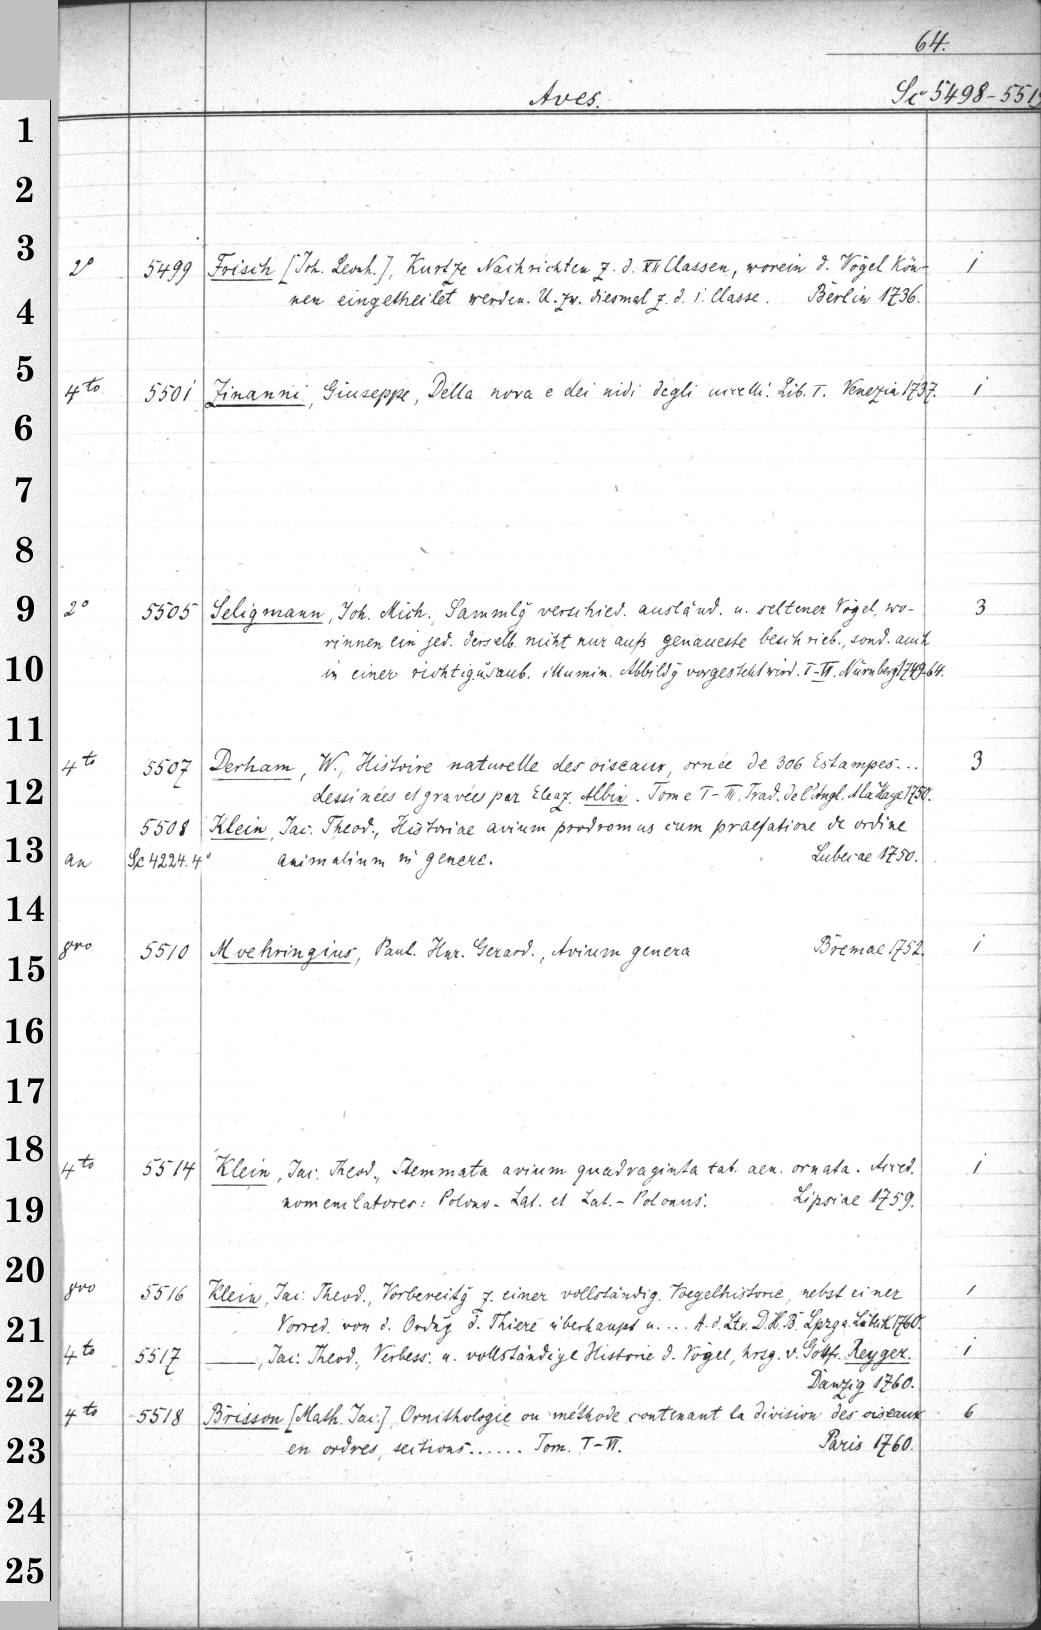 64.
Aves. Sc 5498-551
1
2
3
2° 5499 Frisch [Joh. Leonh.], Kurtze Nachrichten z. d. XII Classen, worein d. Vögel kön- 1
4
nen eingetheilet werden. U. zw. diesmal z. d. 1. Classe. Berlin 1736.
5
4to 5501 Zinanni, Giuseppe, Della nova e dei nidi degli uccelli. Lib. I. Venezia 1737. 1
6
7
8
9
2° 5505 Seligmann, Joh. Mich., Sammlg verschied. ausländ. u. seltener Vögel, wo- 3
rinnen ein jed. derselb. nicht nur aufs genaueste beschrieb., sond. auch
10
in einer richtig u. saub. illumin. Abbildg vorgestellt wird. I-VI. Nürnberg 1749-64.
11
4to 5507 Derham, W., Histoire naturelle des oiseaux, ornée de 306 Estampes... 3
12
dessinées et gravées par Eleaz. Albin. Tome I-III. Trad. de l'Angl. A la Haye 1750.
5508 Klein, Jac. Theod., Historiae avium prodromus cum praefatione de ordine
13
an Sc 4224.4° animalium in genere. Lubecae 1750.
14
8vo 5510 Moehringius, Paul. Hnr. Gerard., Avium genera Bremae 1752. 1
15
16
17
18
4to 5514 Klein, Jac. Theod., Stemmata avium quadraginta tab. aen. ornata. Acced. 1
19
nomenclatores: Polono-Lat. et Lat.-Polonus. Lipsiae 1759.
20
8vo 5516 Klein, Jac. Theod., Vorbereitg z. einer vollständig. Voegelhistorie, nebst einer 1
21
Vorred. von d. Ordng d. Thiere überhaupt u.... A. d. Ltn. D. H. B. Lpzg u. Lübek 1760.
4to 5517 ——, Jac. Theod., Verbess. u. vollständige Historie d. Vögel, hrsg. v. Gottfr. Reyger. 1
22
Danzig 1760.
4to 5518 Brisson [Math. Jac.], Ornithologie ou méthode contenant la division des oiseaux 6
23
en ordres, sections...... Tom. I-VI. Paris 1760.
24
25